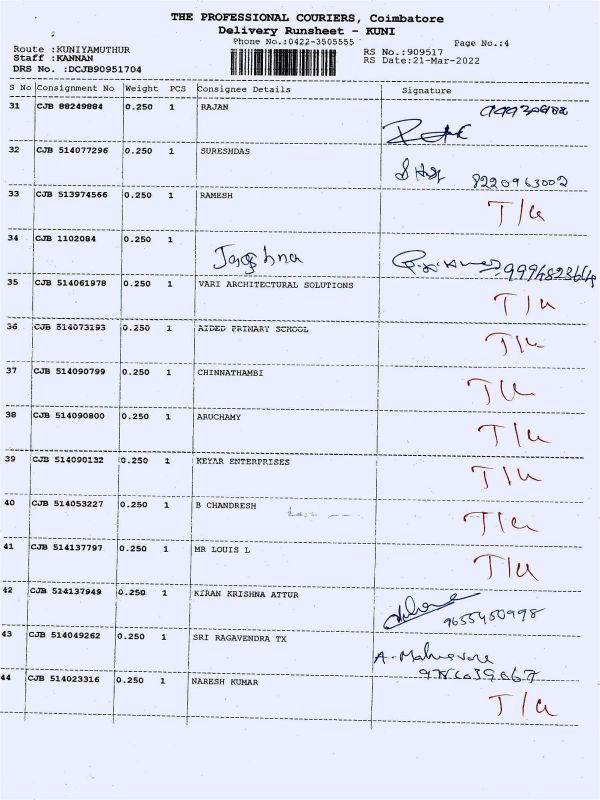 THE PROFESSIONAL COURIERS, Coimbatore
Delivery Runsheet - KUNI
Phone No.:0422-3505555
Page No.:4
Route :KUNIYAMUTHUR
RS No.:909517
Staff :KANNAN
RS Date:21-Mar-2022
DRS No. :DCJB90951704
S No Consignment No Weight PCS Consignee Details Signature
31 CJB 88249884 0.250 1 RAJAN
32 CJB 514077296 0.250 1 SURESHDAS
8220963002
33 CJB 513974566 0.250 1 RAMESH T/u
34 CJB 1102084 0.250 1
35 CJB 514061978 0.250 1 VARI ARCHITECTURAL SOLUTIONS T/u
36 CJB 514073193 0.250 1 AIDED PRIMARY SCHOOL T/u
37 CJB 514090799 0.250 1 CHINNATHAMBI T/u
38 CJB 514090800 0.250 1 ARUCHAMY T/u
39 CJB 514090132 0.250 1 KEYAR ENTERPRISES T/u
40 CJB 514053227 0.250 1 B CHANDRESH T/u
41 CJB 514137797 0.250 1 MR LOUIS L T/u
42 CJB 514137949 0.250 1 KIRAN KRISHNA ATTUR
9655450998
43 CJB 514049262 0.250 1 SRI RAGAVENDRA TX
44 CJB 514023316 0.250 1 NARESH KUMAR T/u